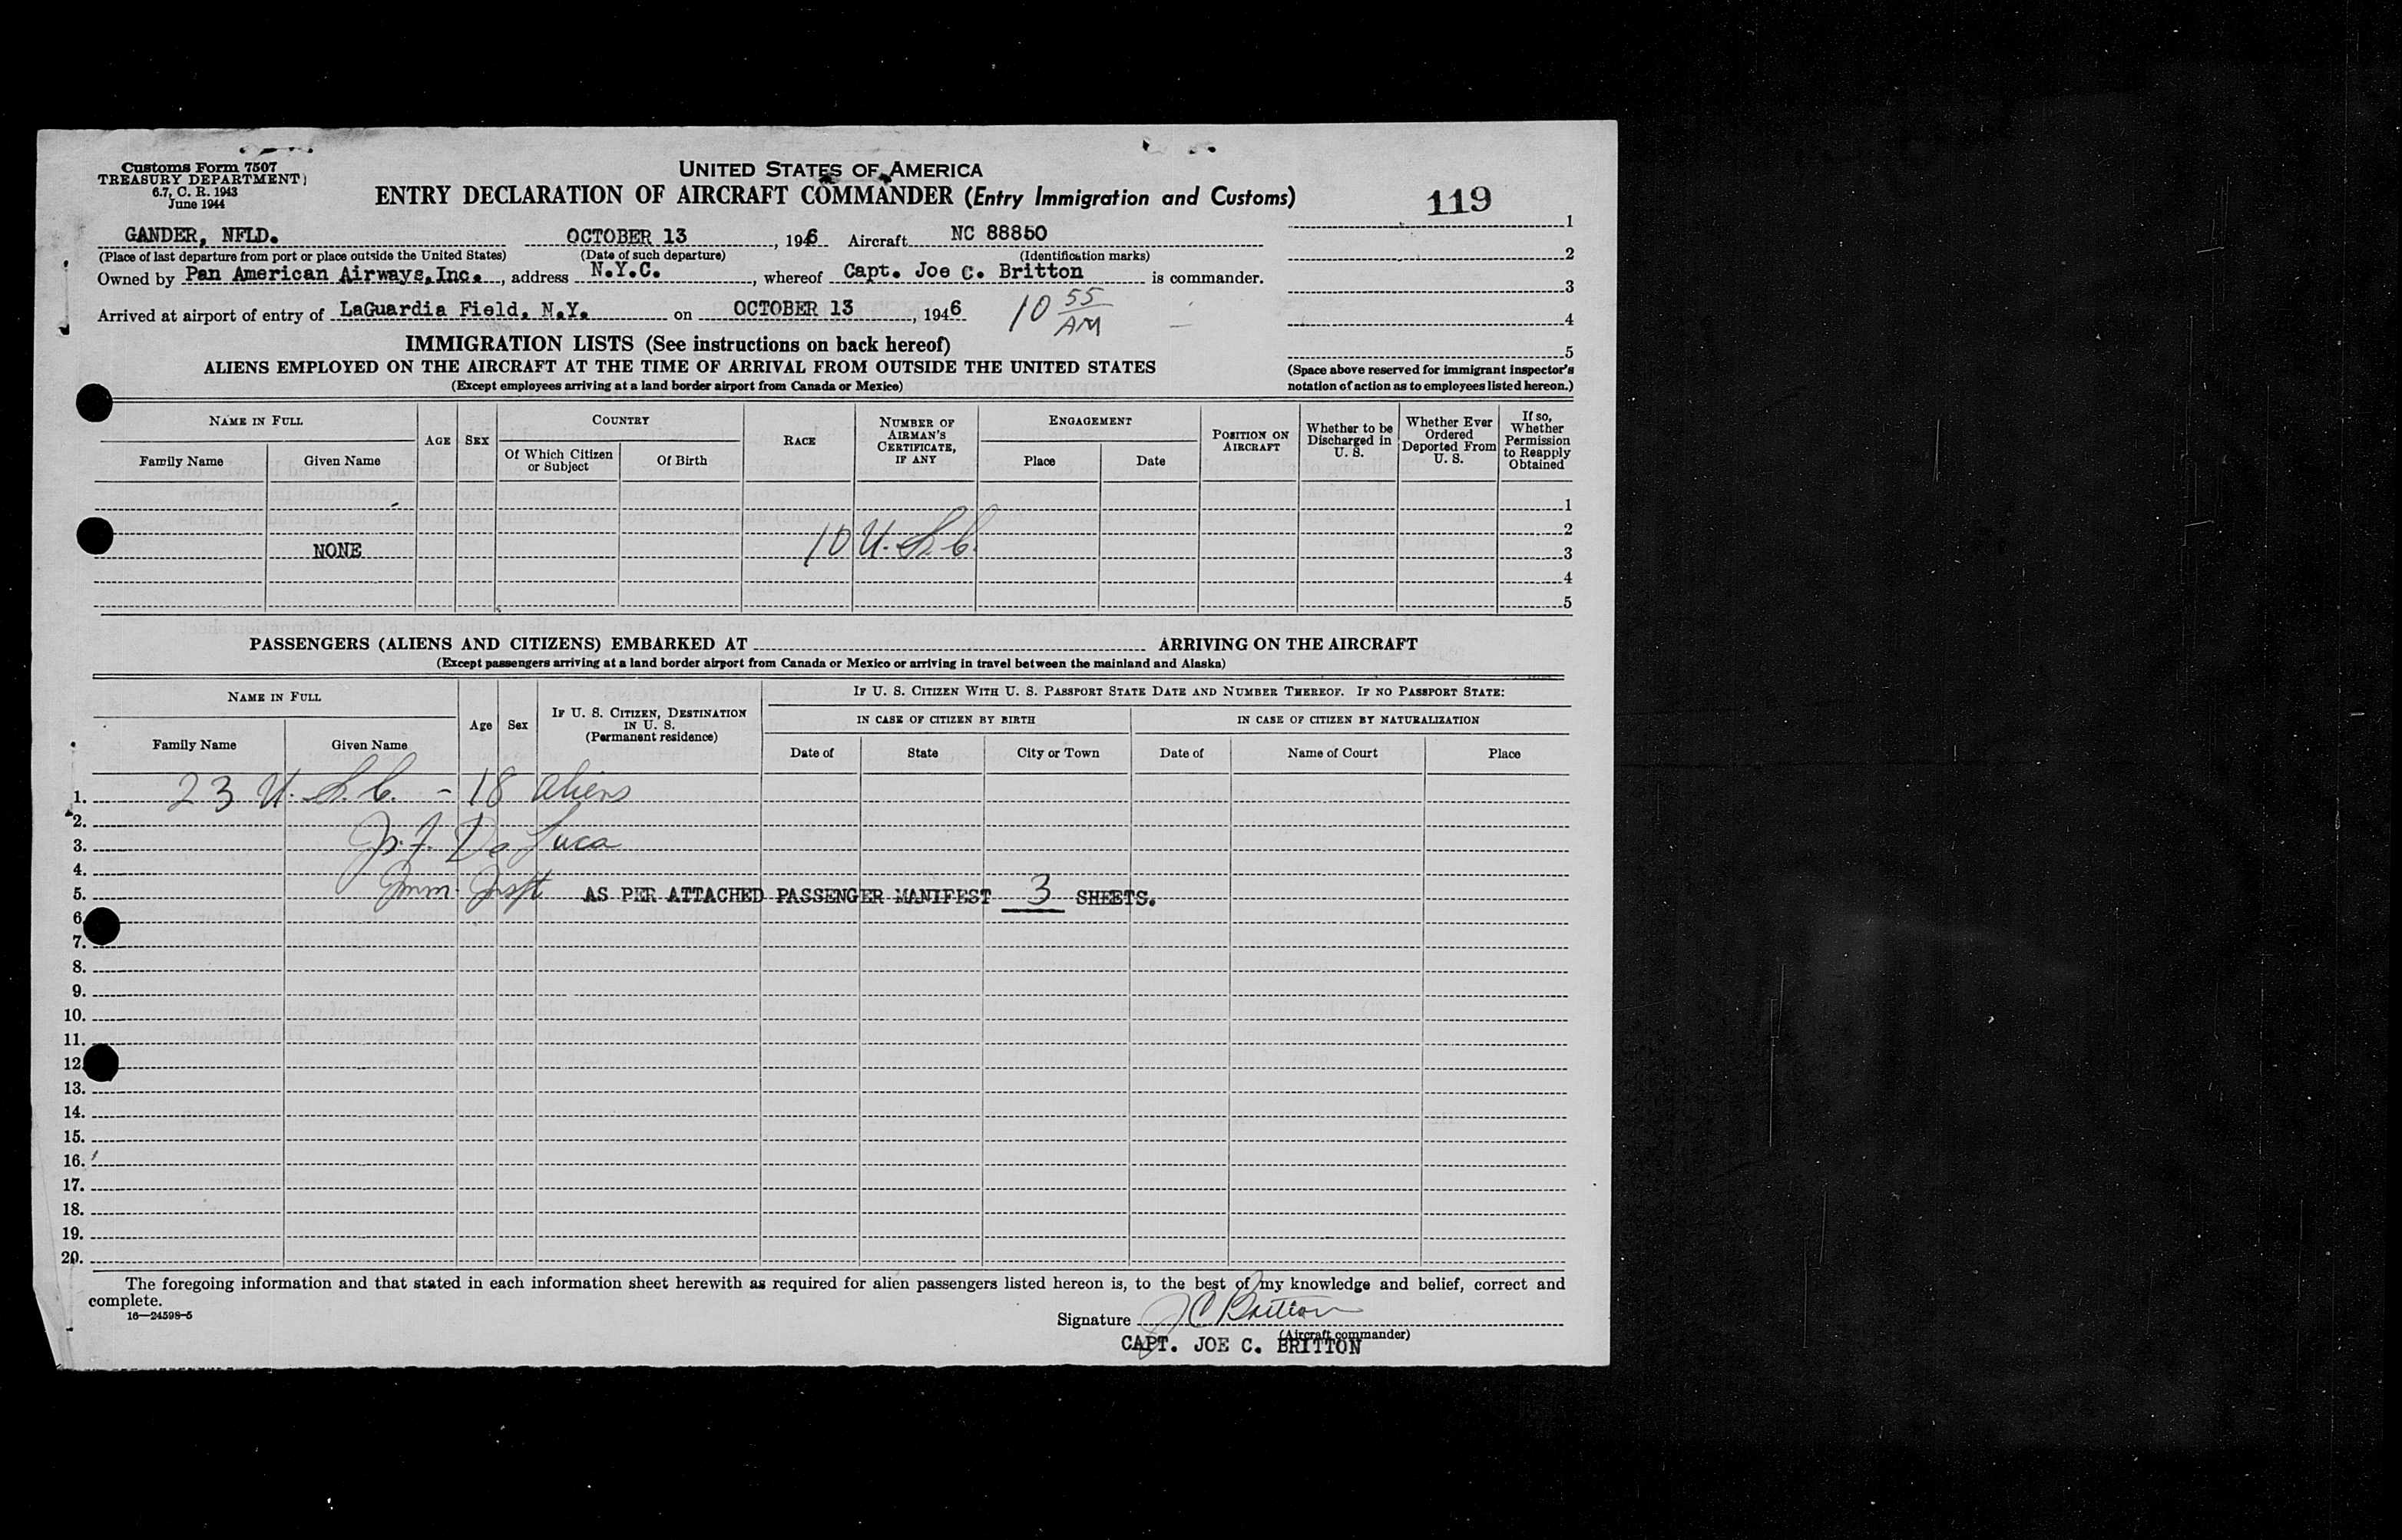 Customs Form 7507
TREASURY DEPARTMENT
6.7, C. R. 1943
June 1944
UNITED STATES OF AMERICA
ENTRY DECLARATION OF AIRCRAFT COMMANDER (Entry Immigration and Customs)
119
GANDER, NFLD. OCTOBER 13, 1946 Aircraft NC 88850
(Place of last departure from port or place outside the United States) (Date of such departure) (Identification marks)
Owned by Pan American Airways, Inc., address N.Y.C., whereof Capt. Joe C. Britton is commander.
Arrived at airport of entry of LaGuardia Field, N.Y. on OCTOBER 13, 1946 10 55 AM
1
2
3
4
5
(Space above reserved for immigrant inspector's notation of action as to employees listed hereon.)
IMMIGRATION LISTS (See instructions on back hereof)
ALIENS EMPLOYED ON THE AIRCRAFT AT THE TIME OF ARRIVAL FROM OUTSIDE THE UNITED STATES
(Except employees arriving at a land border airport from Canada or Mexico)
NAME IN FULL
Family Name Given Name
AGE SEX
COUNTRY
Of Which Citizen or Subject Of Birth
RACE
NUMBER OF AIRMAN'S CERTIFICATE, IF ANY
ENGAGEMENT
Place Date
POSITION ON AIRCRAFT
Whether to be Discharged in U. S.
Whether Ever Ordered Deported From U. S.
If so, Whether Permission to Reapply Obtained
1
2
NONE 10 U.S.C. 3
4
5
PASSENGERS (ALIENS AND CITIZENS) EMBARKED AT ARRIVING ON THE AIRCRAFT
(Except passengers arriving at a land border airport from Canada or Mexico or arriving in travel between the mainland and Alaska)
NAME IN FULL
Family Name Given Name
Age Sex
IF U. S. CITIZEN, DESTINATION IN U. S.
(Permanent residence)
IF U. S. CITIZEN WITH U. S. PASSPORT STATE DATE AND NUMBER THEREOF. IF NO PASSPORT STATE:
IN CASE OF CITIZEN BY BIRTH IN CASE OF CITIZEN BY NATURALIZATION
Date of State City or Town Date of Name of Court Place
1. 23 U.S.C. - 18 aliens
2.
3. De Luca
4.
5. Imm. Inspt AS PER ATTACHED PASSENGER MANIFEST 3 SHEETS.
6.
7.
8.
9.
10.
11.
12.
13.
14.
15.
16.
17.
18.
19.
20.
The foregoing information and that stated in each information sheet herewith as required for alien passengers listed hereon is, to the best of my knowledge and belief, correct and
complete.
16—24598-5
Signature J C Britton
(Aircraft commander)
CAPT. JOE C. BRITTON